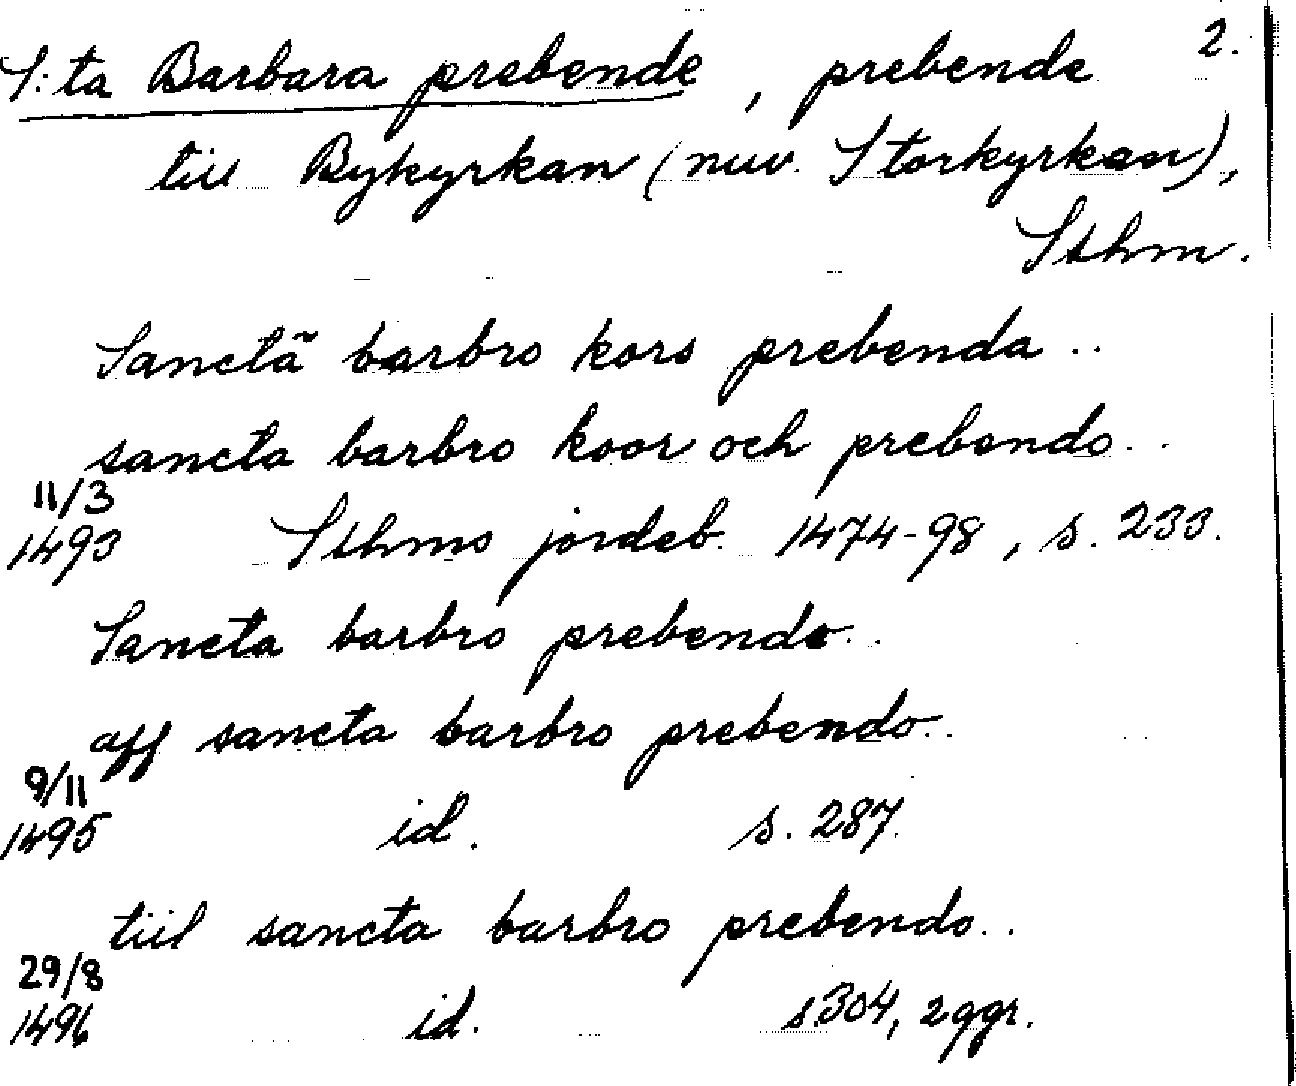 S:ta Barbara prebende, prebende 2.
till Bykyrkan (nuv. Storkyrkan),
Sthm.
Sanctã barbro kors prebenda ..
sancta barbro koor och prebendo ..
11/3
1493 Sthms jordeb. 1474-98, s. 233.
Sancta barbro prebendo ..
aff sancta barbro prebendo ..
9/11
1495 id. s. 287.
tiil sancta barbro prebendo ..
29/8
1496 id. s. 304, 2 ggr.